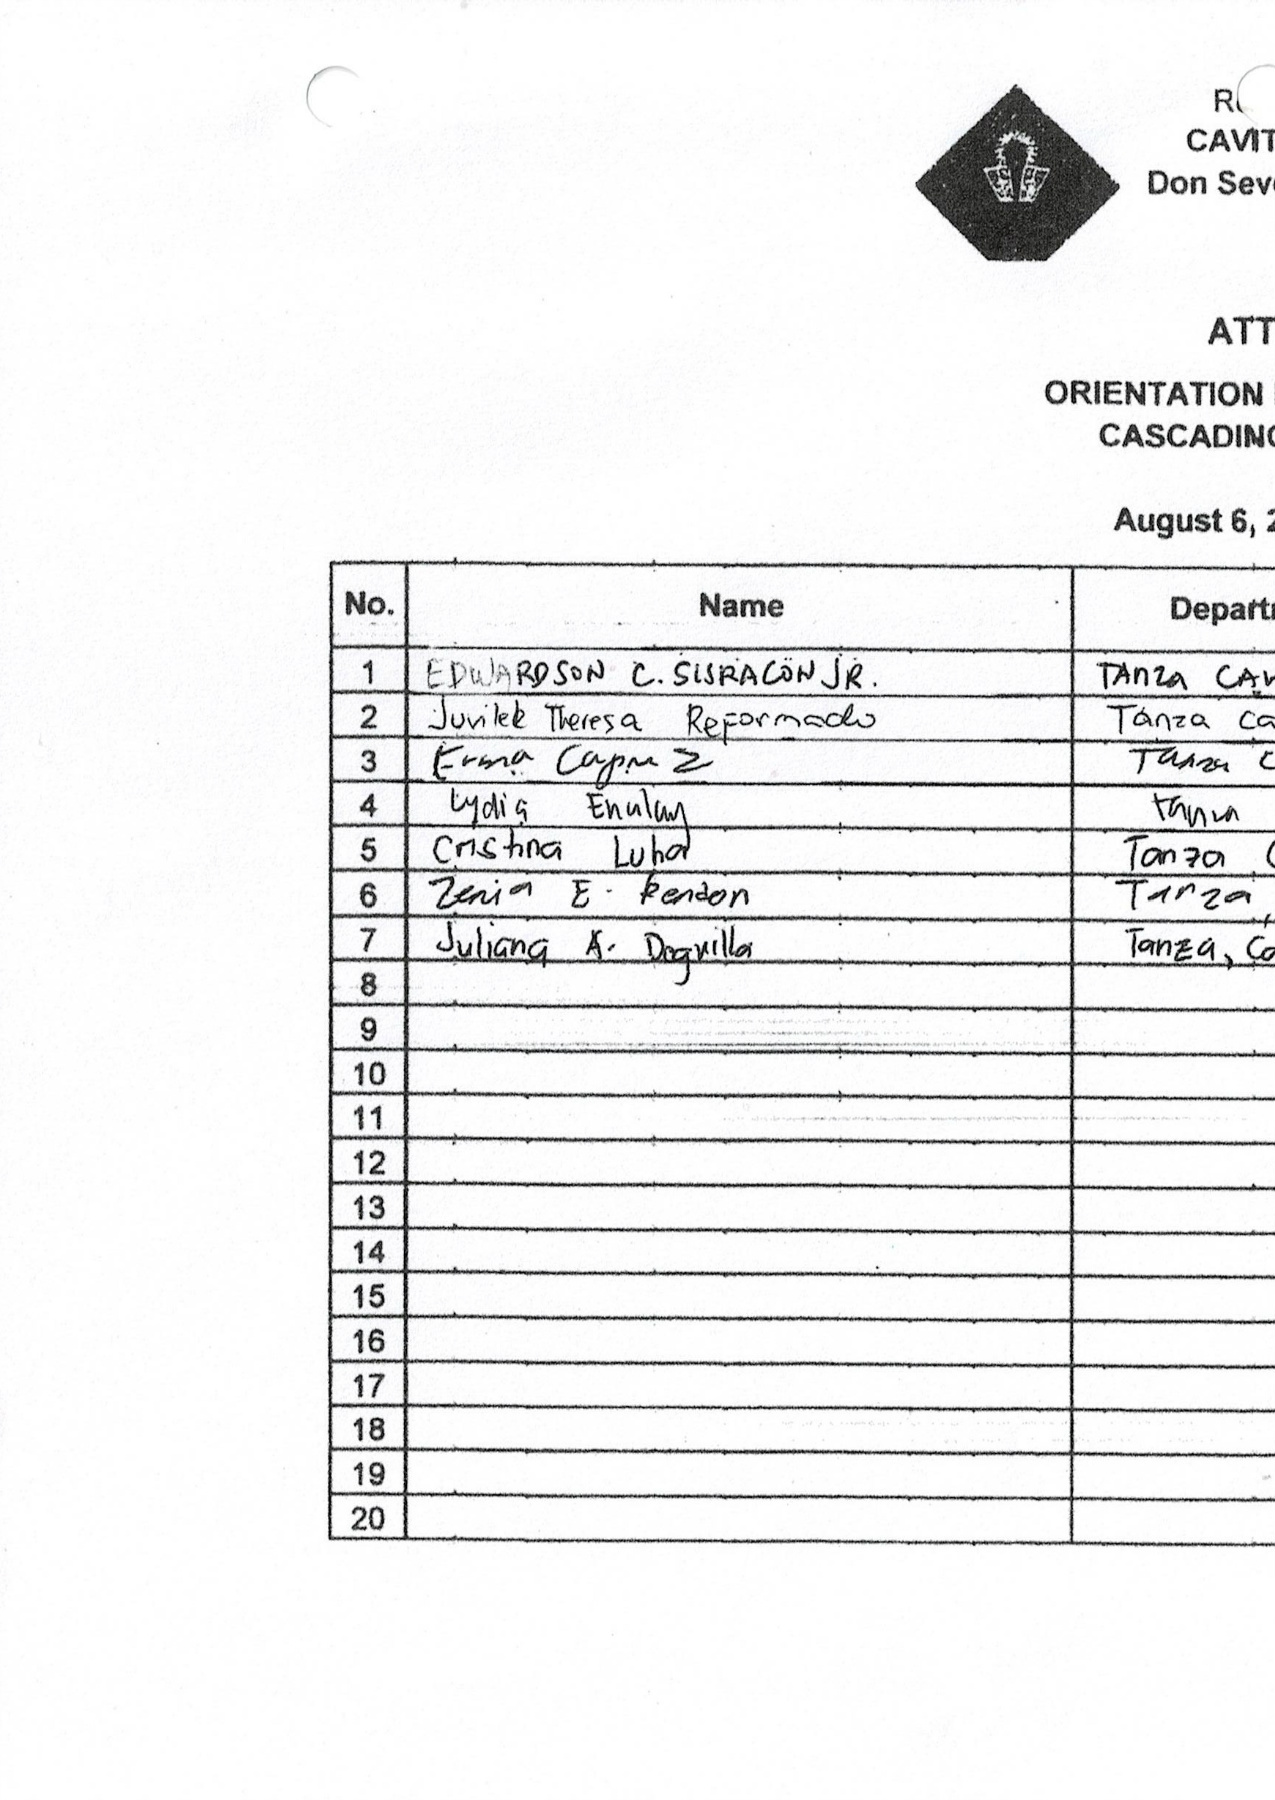 CAVIT
Don Seve
ATT
ORIENTATION
CASCADING
August 6, 2
No. Name Departm
1 EDWARDSON C. SISRACON JR. TANZA CAV
2 Juvilek Theresa Reformado Tanza Ca
3 Erma Tanza C
4 Lydia Enulay tanza
5 Cristina Luha Tanza C
6 Zenia E. Rendon Tanza,
7 Juliana A. Doquilla Tanza, Ca
8
9
10
11
12
13
14
15
16
17
18
19
20